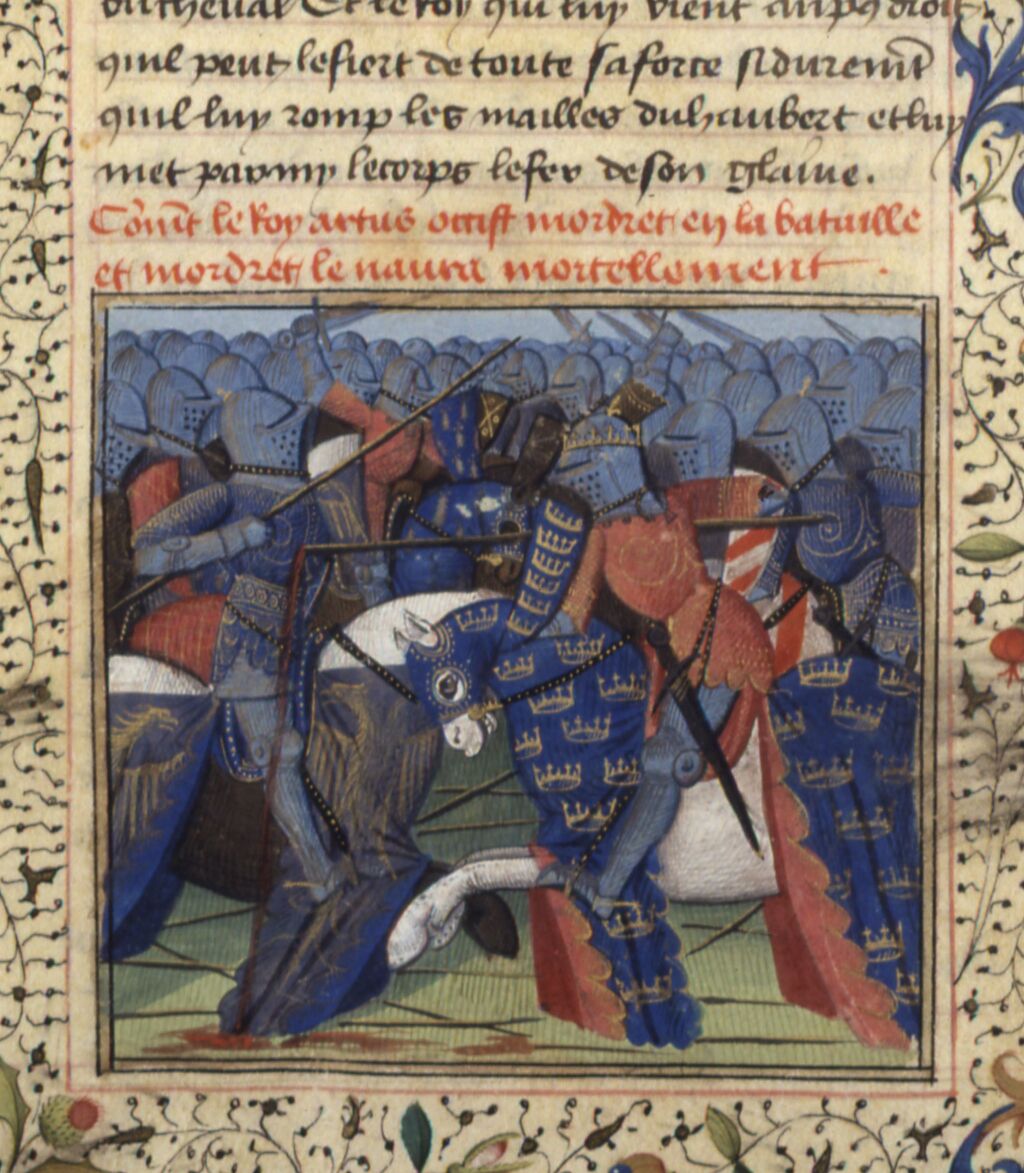 du cheval Et le roy qui luy vient au plus droit
quil peut le fiert de toute sa force si durem̄t
quil luy romp les mailles du haubert et luy
met parmy le corps le fer de son glaiue.
Cōm̄t le Roy artus occist mordret en la bataille
et mordret le naura mortellement.